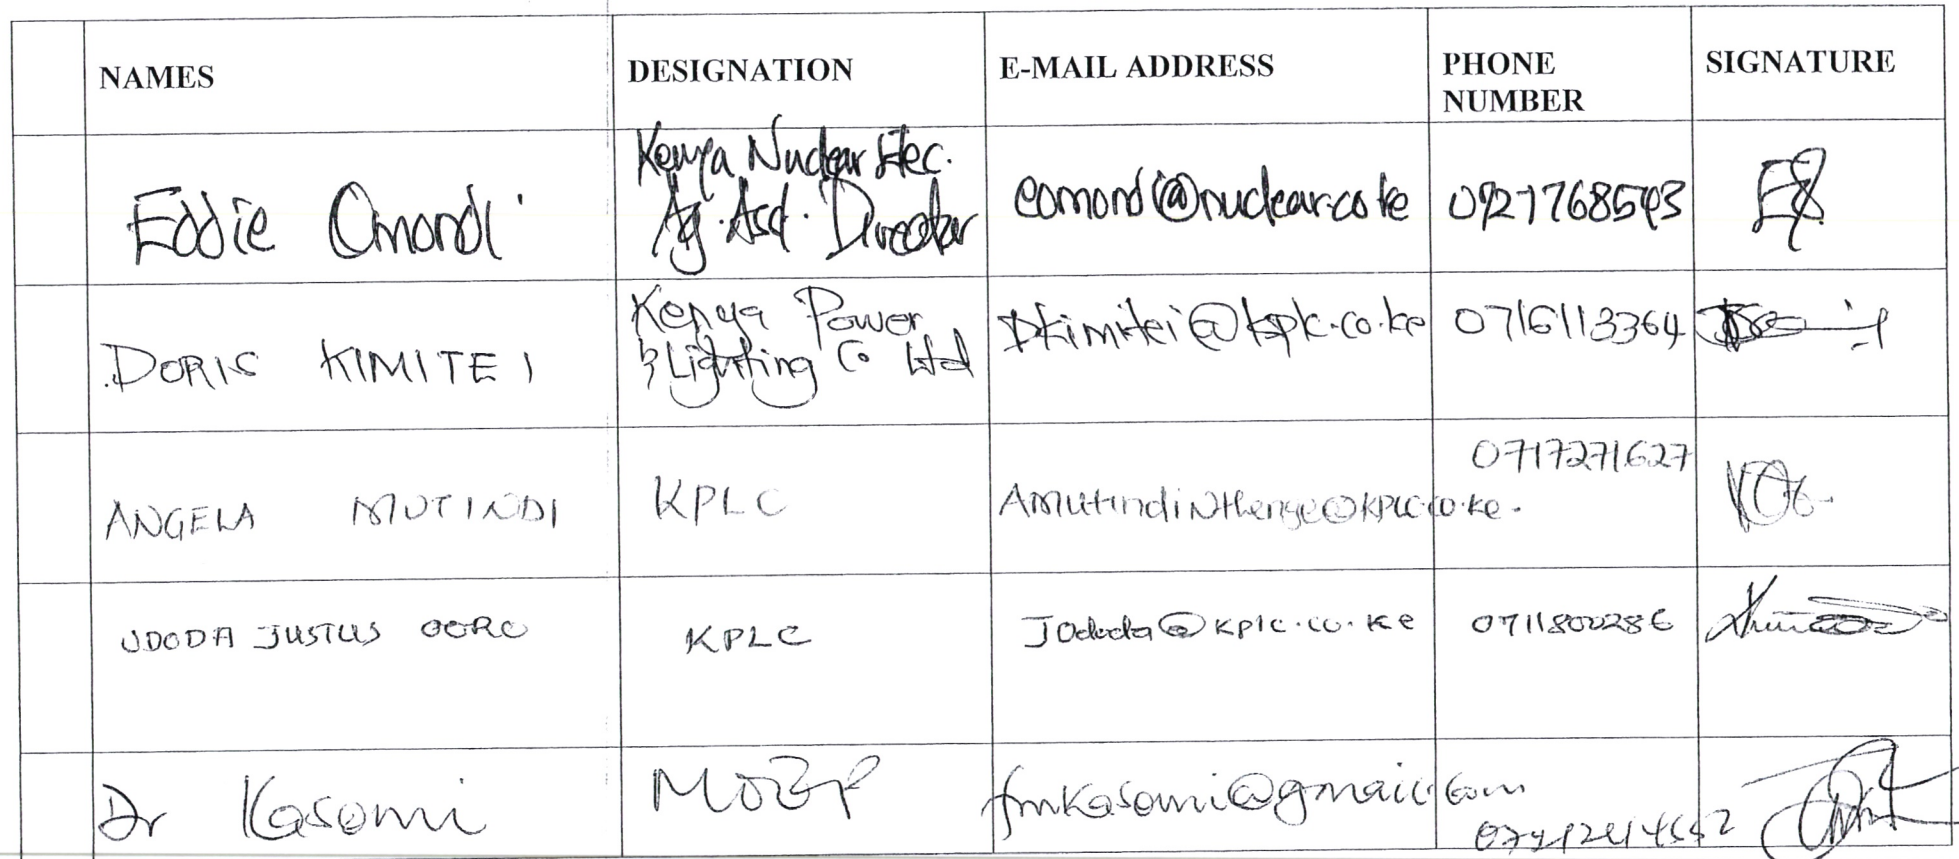 NAMES
DESIGNATION
E-MAIL ADDRESS
PHONE
NUMBER
SIGNATURE
Eddie Omondi
Kenya Nuclear Elec.
Ag. Asst. Director
eomondi@nuclear.co.ke
Doris Kimitei
Kenya Power
& Lighting Co Ltd
Dkimitei@kplc.co.ke
0716113364
ANGELA MUTINDI
KPLC
AMutindiNthenge@kplc.co.ke.
0717271627
JUSTUS
KPLC
JOdoda@kplc.co.ke
0711800286
Dr Kasomi
fmkasomi@gmail.com